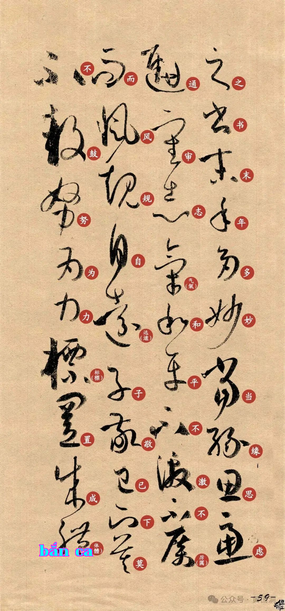 之书末年多妙当缘思虑
通审志气和平不激不厉
而风规自远子敬已下莫
不鼓努为力标置成体
bán ca
公众号
-59-